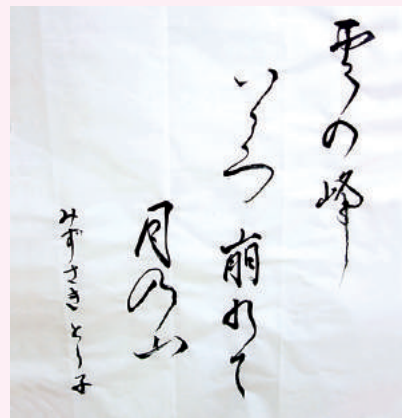 雲の峰
いくつ崩れて
月の山
みずさきとし子